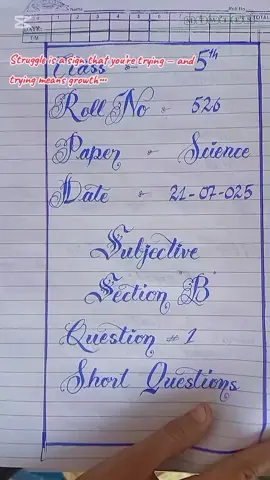 Struggle is a sign that you're trying — and
trying means growth...
Class - 5th
Roll No - 526
Paper - Science
Date - 21-07-025
Subjective
Section "B"
Question # 1
Short Questions